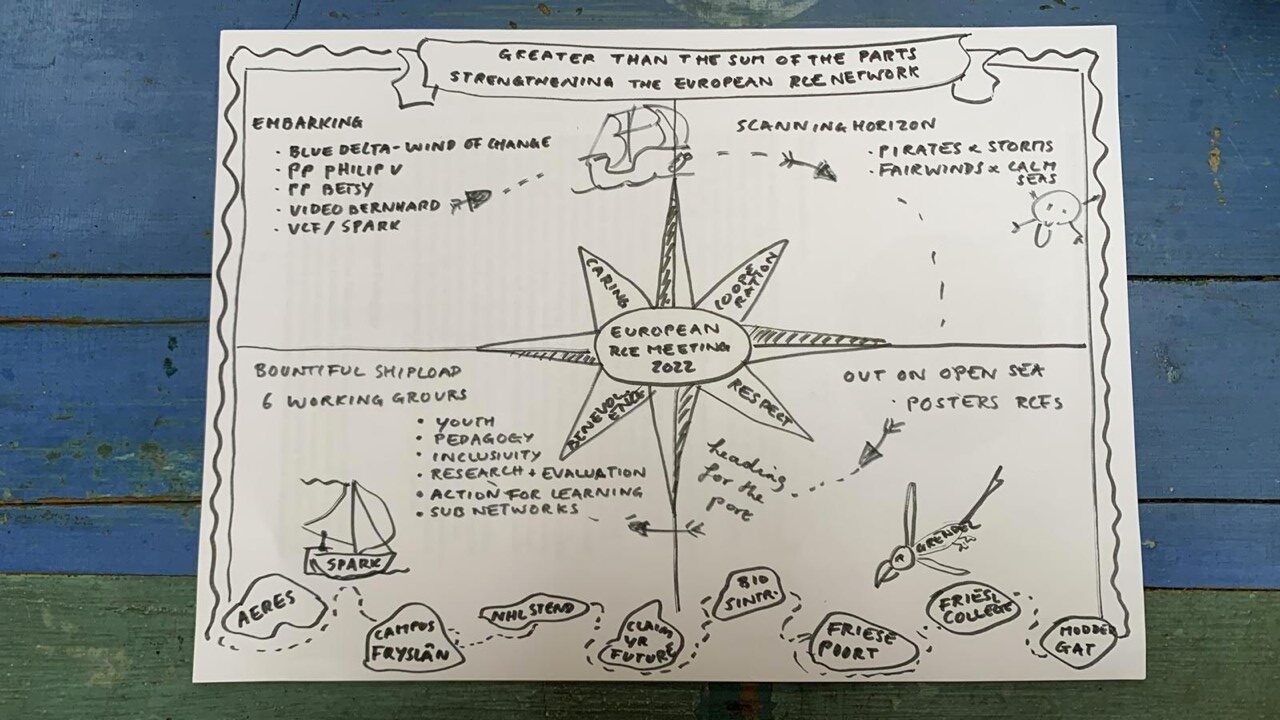 GREATER THAN THE SUM OF THE PARTS
STRENGTHENING THE EUROPEAN RCE NETWORK
EMBARKING
· BLUE DELTA - WIND OF CHANGE
· PP PHILIP V
· PP BETSY
· VIDEO BERNHARD
· VCF / SPARK
SCANNING HORIZON
· PIRATES & STORMS
· FAIRWINDS & CALM
SEAS
CARING
COOPE
RATION
EUROPEAN
RCE MEETING
2022
BENEVOL
ENCE
RESPECT
BOUNTIFUL SHIPLOAD
6 WORKING GROUPS
• YOUTH
• PEDAGOGY
• INCLUSIVITY
• RESEARCH + EVALUATION
• ACTION FOR LEARNING
• SUB NETWORKS
OUT ON OPEN SEA
· POSTERS RCES
heading
for the
port
SPARK
GRENDEL
AERES
CAMPUS
FRYSLÂN
NHL STEND
CLAIM
YR
FUTURE
BIO
SINTR.
FRIESE
POORT
FRIESL
COLLEGE
MODDER
GAT